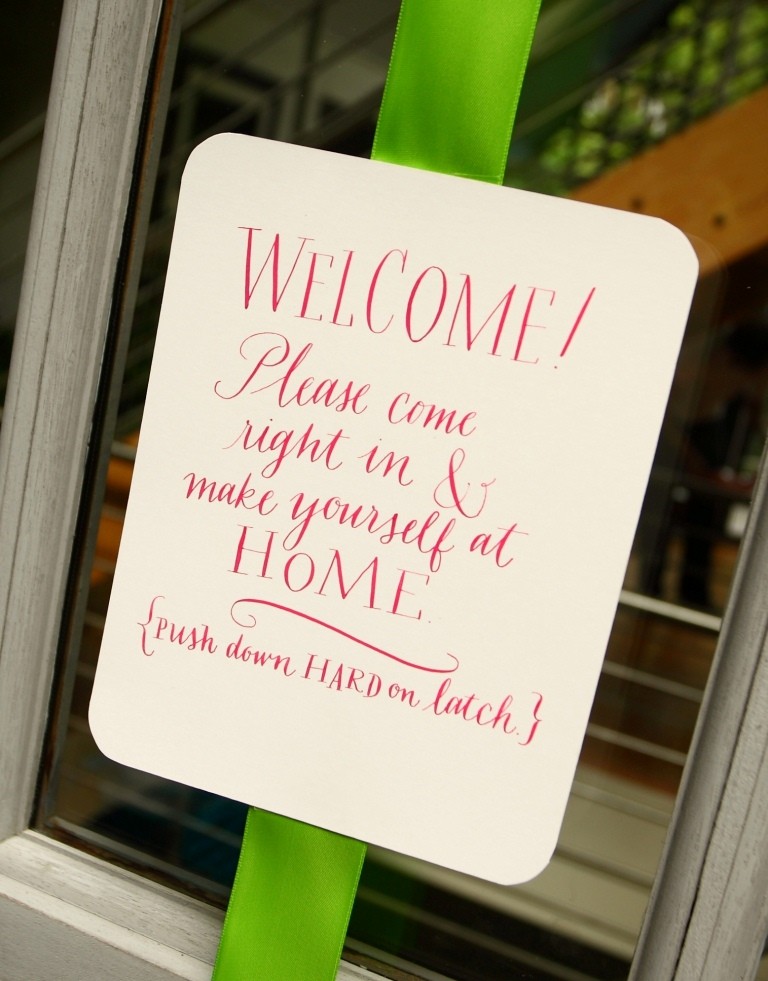 WELCOME!
Please come
right in &
make yourself at
HOME.
{push down HARD on latch.}